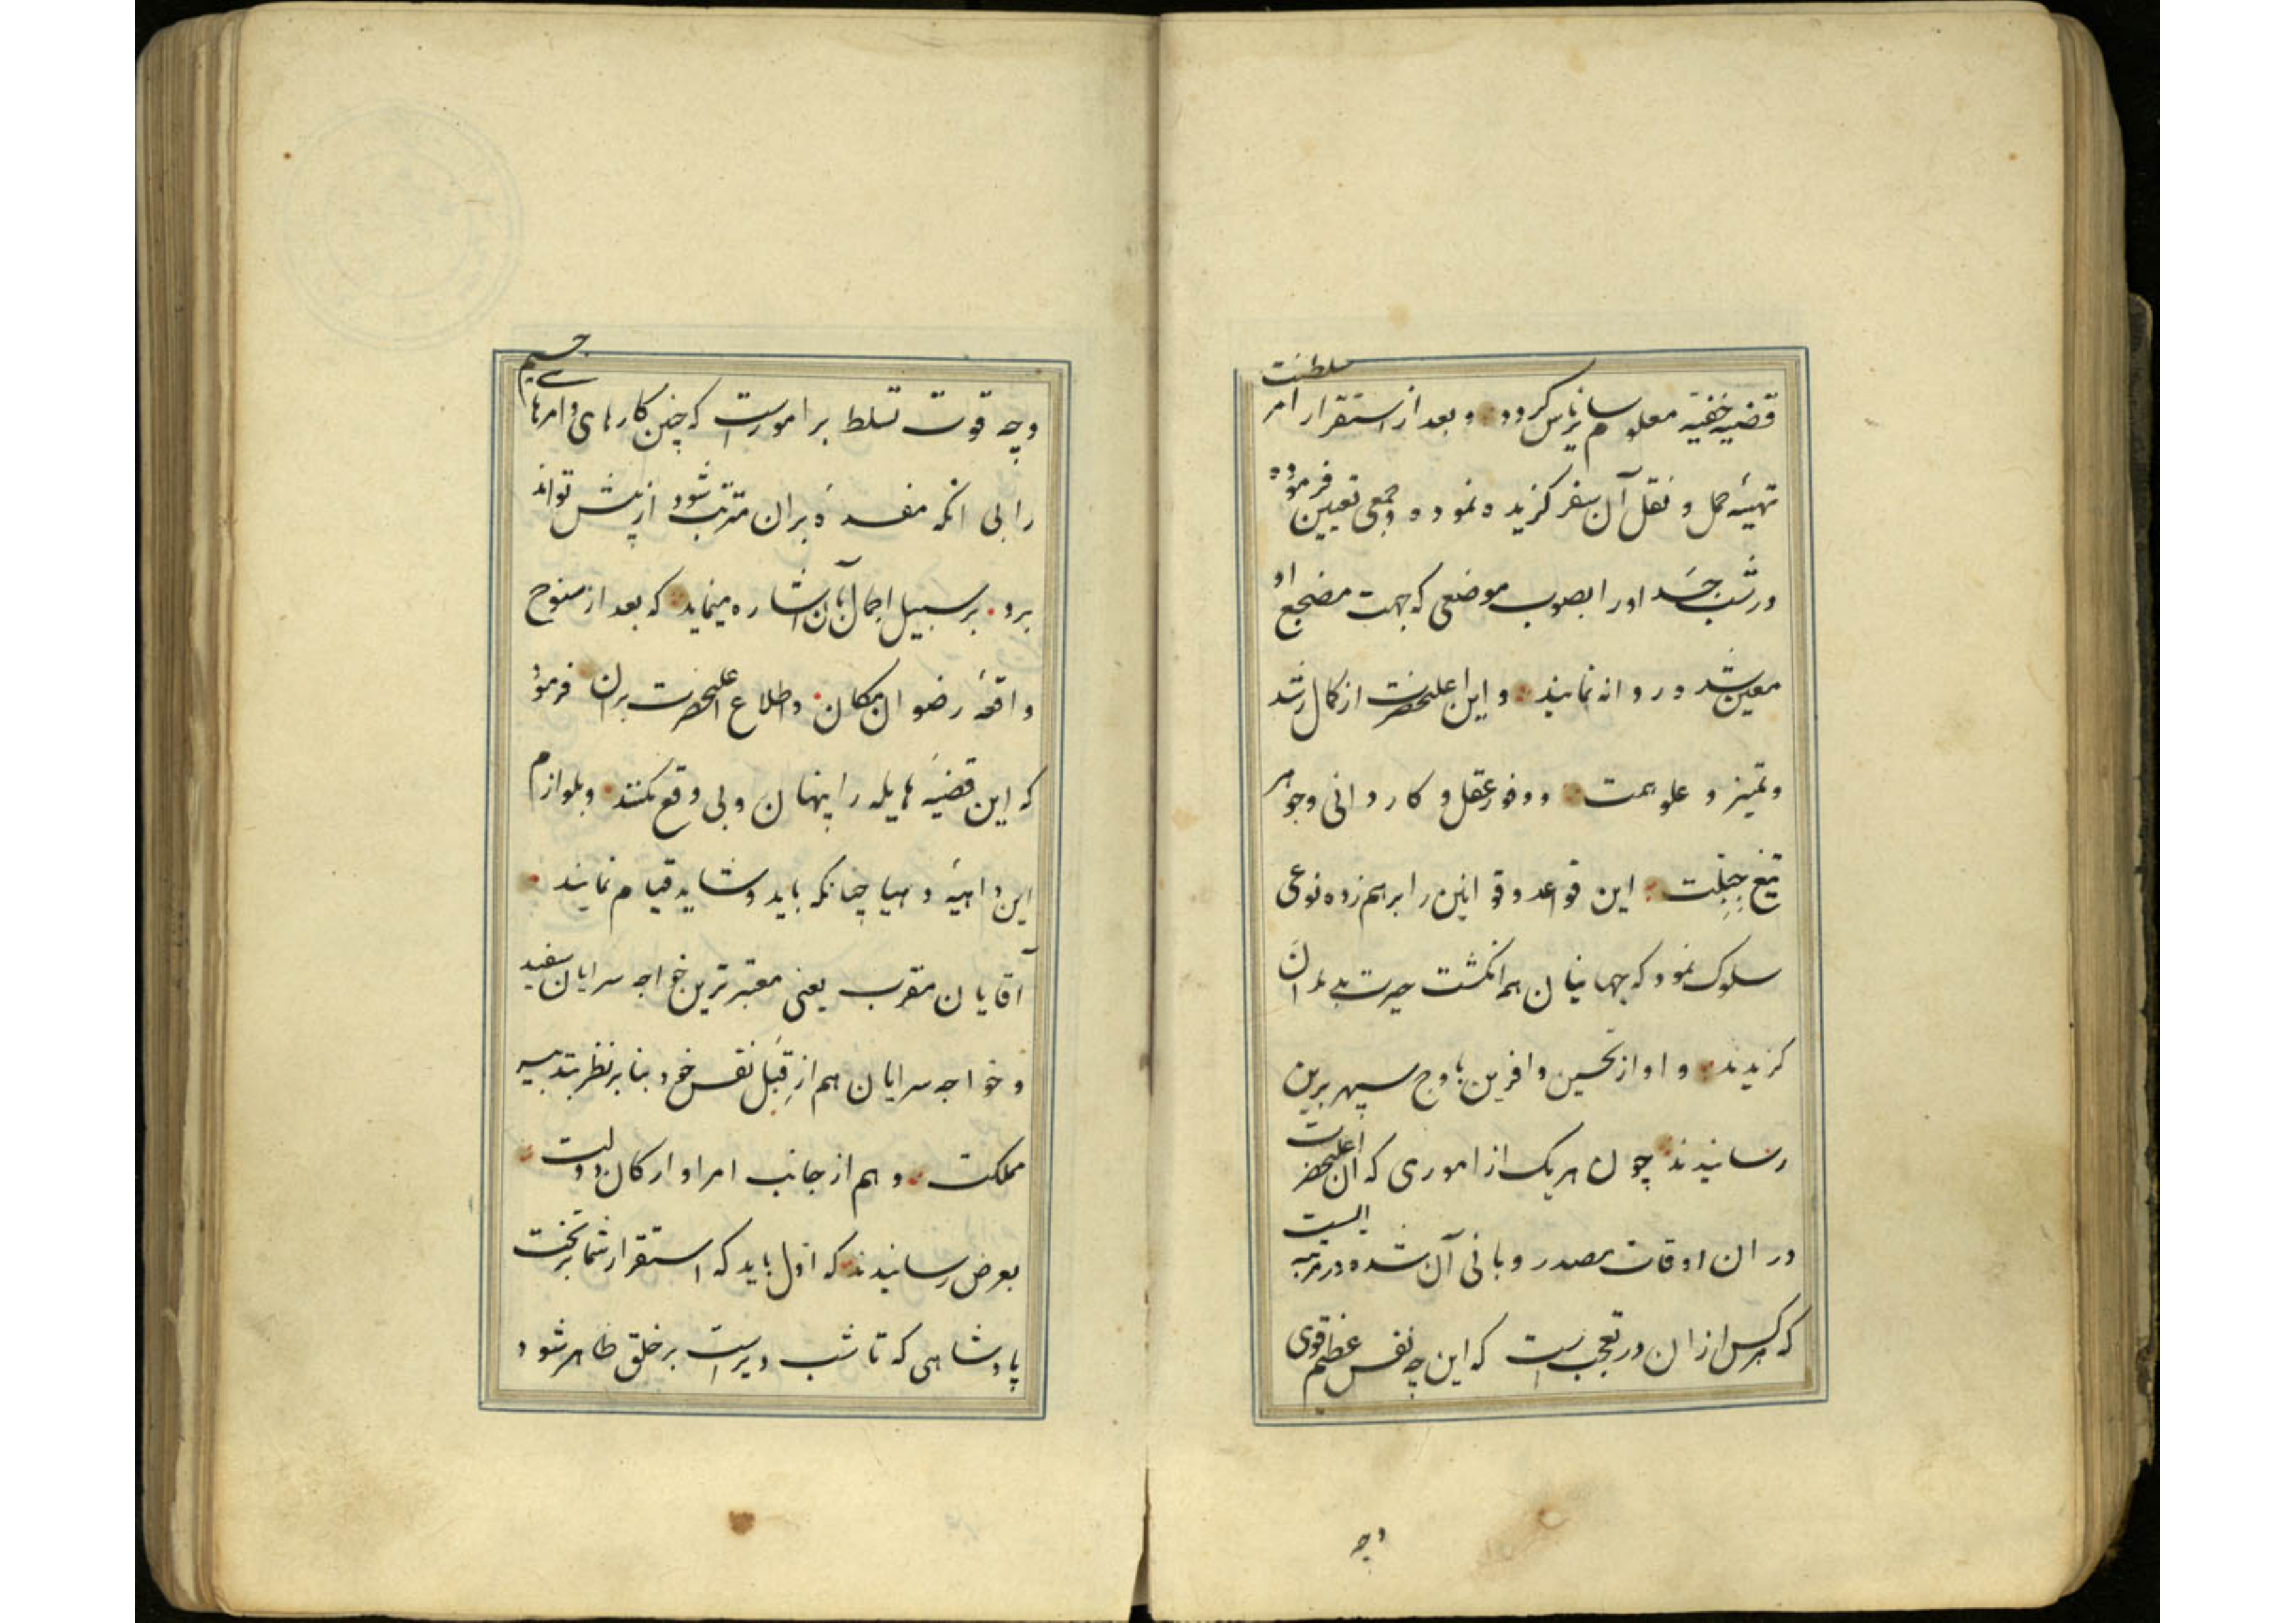 قضیه خفیه معلوم سایر ناس کردد و بعد از استقرار امر سلطنت
تهیهٔ حمل و نقل آن سفر کزیده نموده و جمعی تعیین فرموده
در شب جسد او را بصوب موضعی که جهت مضجع او
معین شده روانه نمایند و این اعلیحضرت از کمال رشد
و تمیز و علو همت و وفور عقل و کاردانی و جوهر
تیغ جبلت این قواعد و قوانین را برهم زده نوعی
سلوک نمود که جهانیان همه انکشت حیرت بدندان
کزیدند و اواز تحسین و افرین باوج سپهر برین
رسانیدند چون هر یک از اموری که آن اعلیحضرت
در ان اوقات مصدر و بانی آن شده در مرتبه ایست
که هر کس از ان در تعجب است که این چه نفس عظیم قوی
وچه
وچه قوت تسلط بر امورست که چنین کارهای و امرهای جسیم
را بی انکه مفسدهٔ بران مترتب شود از پیش تواند
برد بر سبیل اجمال بآن اشاره مینماید که بعد از سنوح
واقعهٔ رضوان مکان و اطلاع اعلیحضرت بران فرمود
که این قضیهٔ هایله را پنهان و بی وقع نکنند و بلوازم
این داهیهٔ دهیا چنانکه باید و شاید قیام نمایند
آقایان مقرب یعنی معتبرترین خواجه سرایان سفید
و خواجه سرایان هم از قبل نفس خود بنابر نظر بتدبیر
مملکت و هم از جانب امرا و ارکان دولت
بعرض رسانیدند که اول باید که استقرار شما بر تخت
پادشاهی که تا شب دیرست بر خلق ظاهر شود و